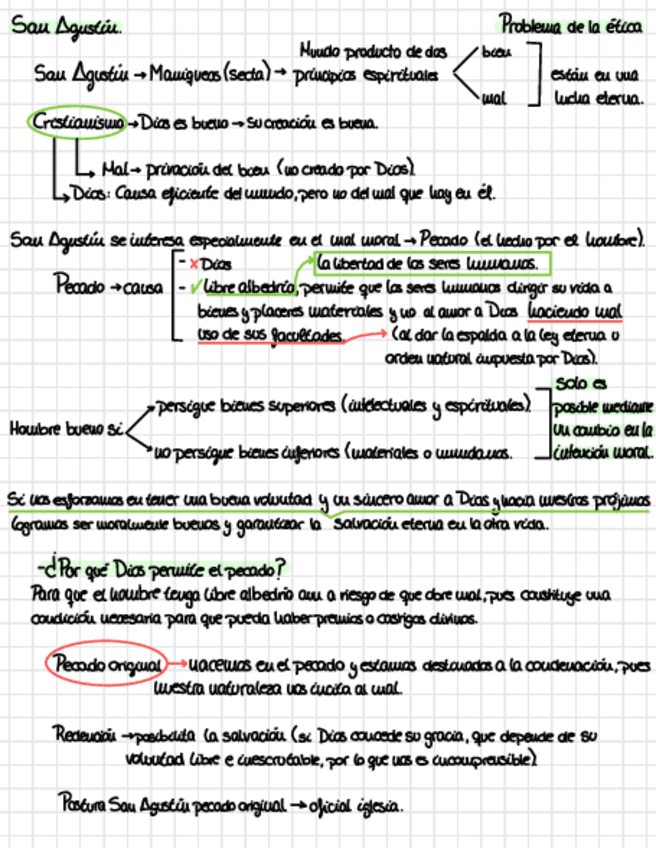 San Agustín. Problema de la ética
Mundo producto de dos bien
San Agustín → Maniqueos (secta) → principios espirituales están en una
mal lucha eterna.
Crestianismo → Dios es bueno → su creación es buena.
Mal → privación del bien (no creado por Dios)
Dios: Causa eficiente del mundo, pero no del mal que hay en él.
San Agustín se interesa especialmente en el mal moral → Pecado (el hecho por el hombre).
- x Dios la libertad de los seres humanos.
Pecado → causa - ✓ libre albedrío, permite que los seres humanos dirigir su vida a
bienes y placeres materiales y no al amor a Dios haciendo mal
uso de sus facultades. → (al dar la espalda a la ley eterna u
orden natural impuesta por Dios).
Solo es
persigue bienes superiores (intelectuales y espirituales) posible mediante
Hombre bueno si un cambio en la
no persigue bienes inferiores (materiales o mundanos. intención moral.
Si nos esforzamos en tener una buena voluntad y un sincero amor a Dios y hacia nuestros prójimos
logramos ser moralmente buenos y garantizar la salvación eterna en la otra vida.
-¿Por qué Dios permite el pecado?
Para que el hombre tenga libre albedrío aun a riesgo de que obre mal, pues constituye una
condición necesaria para que pueda haber premios o castigos divinos.
Pecado original → nacemos en el pecado y estamos destinados a la condenación, pues
nuestra naturaleza nos incita al mal.
Redención → posibilita la salvación (si Dios concede su gracia, que depende de su
voluntad libre e inescrutable, por lo que nos es incomprensible)
Postura San Agustín pecado original → oficial iglesia.